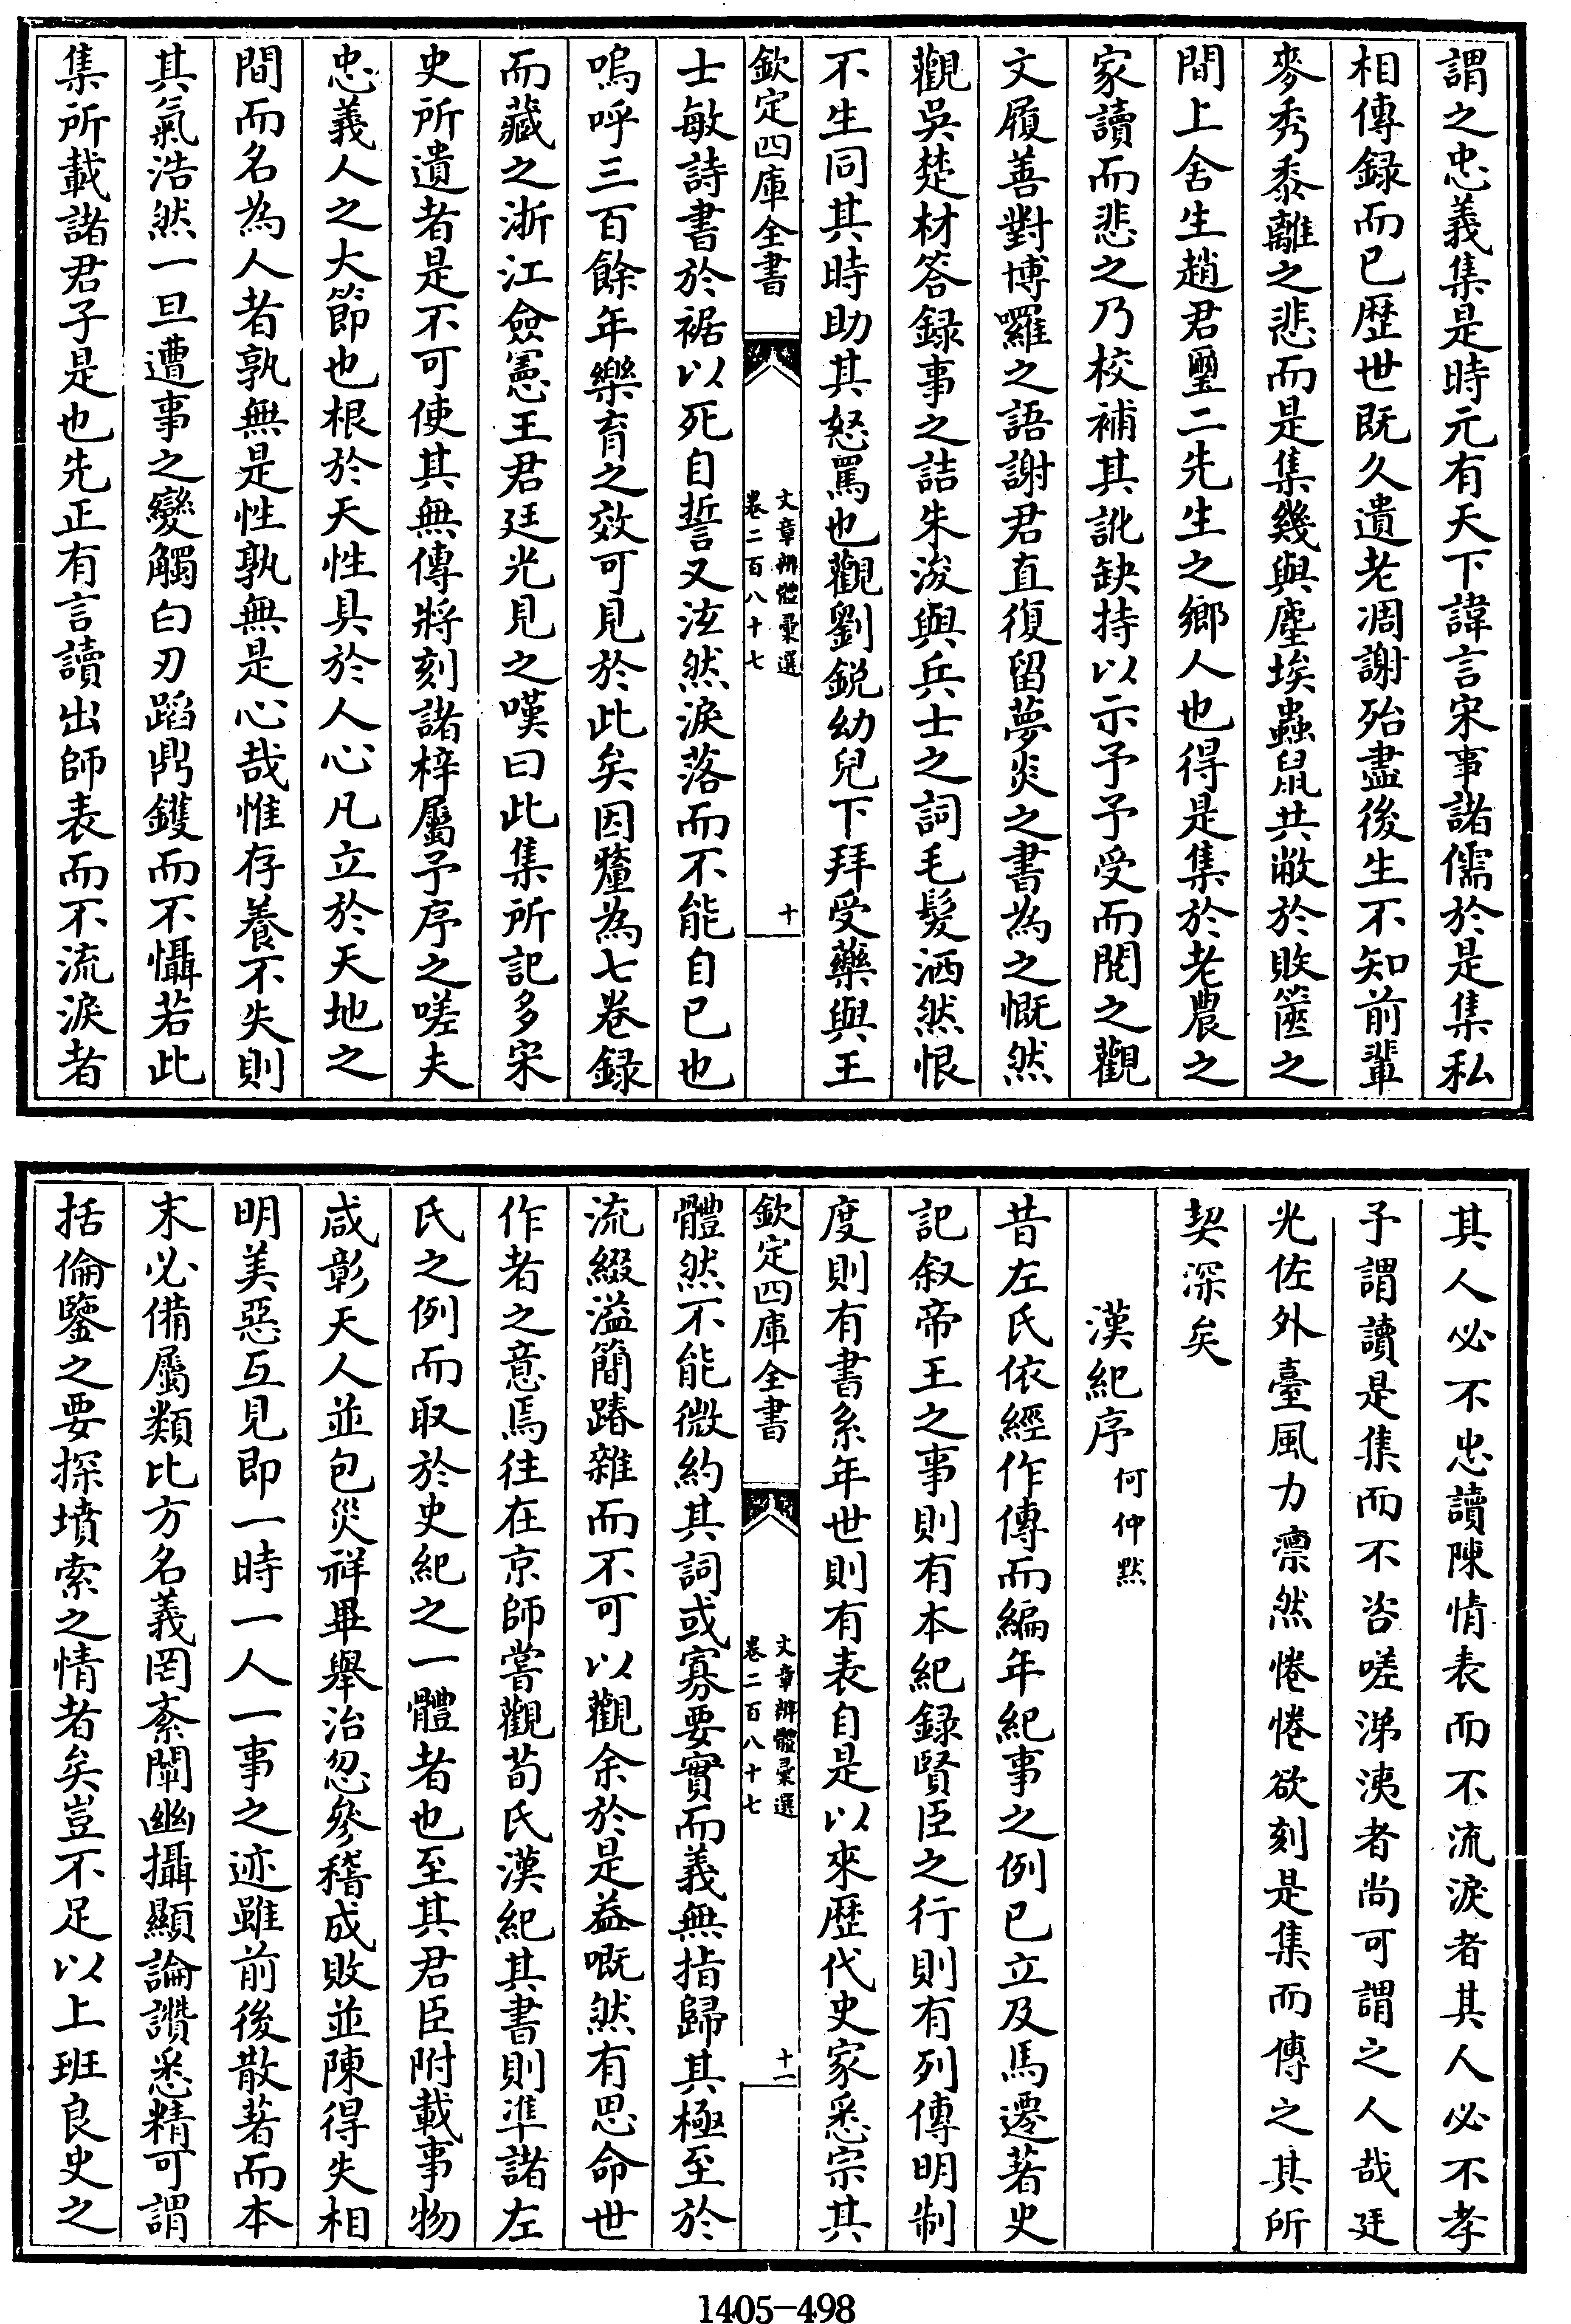 謂之忠義集是時元有天下諱言宋事諸儒於是集私
相傳録而已歴世既久遺老凋謝殆盡後生不知前輩
麥秀黍離之悲而是集幾與塵埃蟲鼠共敝於敗篋之
間上舍生趙君璽二先生之鄉人也得是集於老農之
家讀而悲之乃校補其訛缺持以示予予受而閱之觀
文履善對博囉之語謝君直復留夢炎之書為之慨然
觀吳楚材答録事之詰朱浚與兵士之詞毛髮洒然恨
不生同其時助其怒罵也觀劉鋭幼兒下拜受藥與王
欽定四庫全書
文章辨體彚選
卷二百八十七
十
士敏詩書於裾以死自誓又泫然淚落而不能自已也
嗚呼三百餘年樂育之效可見於此矣因釐為七卷録
而藏之浙江僉憲王君廷光見之嘆曰此集所記多宋
史所遺者是不可使其無傳將刻諸梓屬予序之嗟夫
忠義人之大節也根於天性具於人心凡立於天地之
間而名為人者孰無是性孰無是心哉惟存養不失則
其氣浩然一旦遭事之變觸白刃蹈鼎鑊而不懾若此
集所載諸君子是也先正有言讀出師表而不流淚者
其人必不忠讀陳情表而不流淚者其人必不孝
予謂讀是集而不咨嗟涕洟者尚可謂之人哉廷
光佐外臺風力凛然惓惓欲刻是集而傳之其所
契深矣
漢紀序何仲默
昔左氏依經作傳而編年紀事之例已立及馬遷著史
記叙帝王之事則有本紀録賢臣之行則有列傳明制
度則有書系年世則有表自是以來歴代史家悉宗其
欽定四庫全書
文章辨體彚選
卷二百八十七
十一
體然不能微約其詞或寡要實而義無指歸其極至於
流綴溢簡踳雜而不可以觀余於是益嘅然有思命世
作者之意焉往在京師嘗觀荀氏漢紀其書則準諸左
氏之例而取於史紀之一體者也至其君臣附載事物
咸彰天人並包災祥畢舉治忽參稽成敗並陳得失相
明美惡互見即一時一人一事之迹雖前後散著而本
末必備屬類比方名義罔紊闡幽攝顯論讚悉精可謂
括倫鑒之要探墳索之情者矣豈不足以上班良史之
1405—498